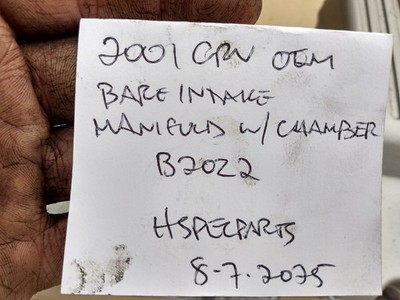 2001 CRV OEM
BARE INTAKE
MANIFOLD W/ CHAMBER
B20Z2
HSPECPARTS
8-7.2025